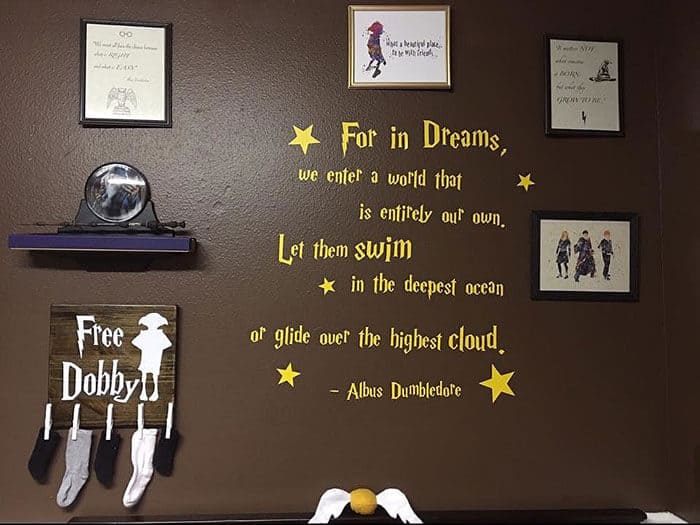 "We must all face the choice between
what is RIGHT
and what is EASY."
What a beautiful place...
to be with friends...
It matters NOT
what someone
is BORN,
but what they
GROW TO BE.
For in Dreams,
we enter a world that
is entirely our own.
Let them swim
in the deepest ocean
or glide over the highest cloud.
- Albus Dumbledore
Free
Dobby